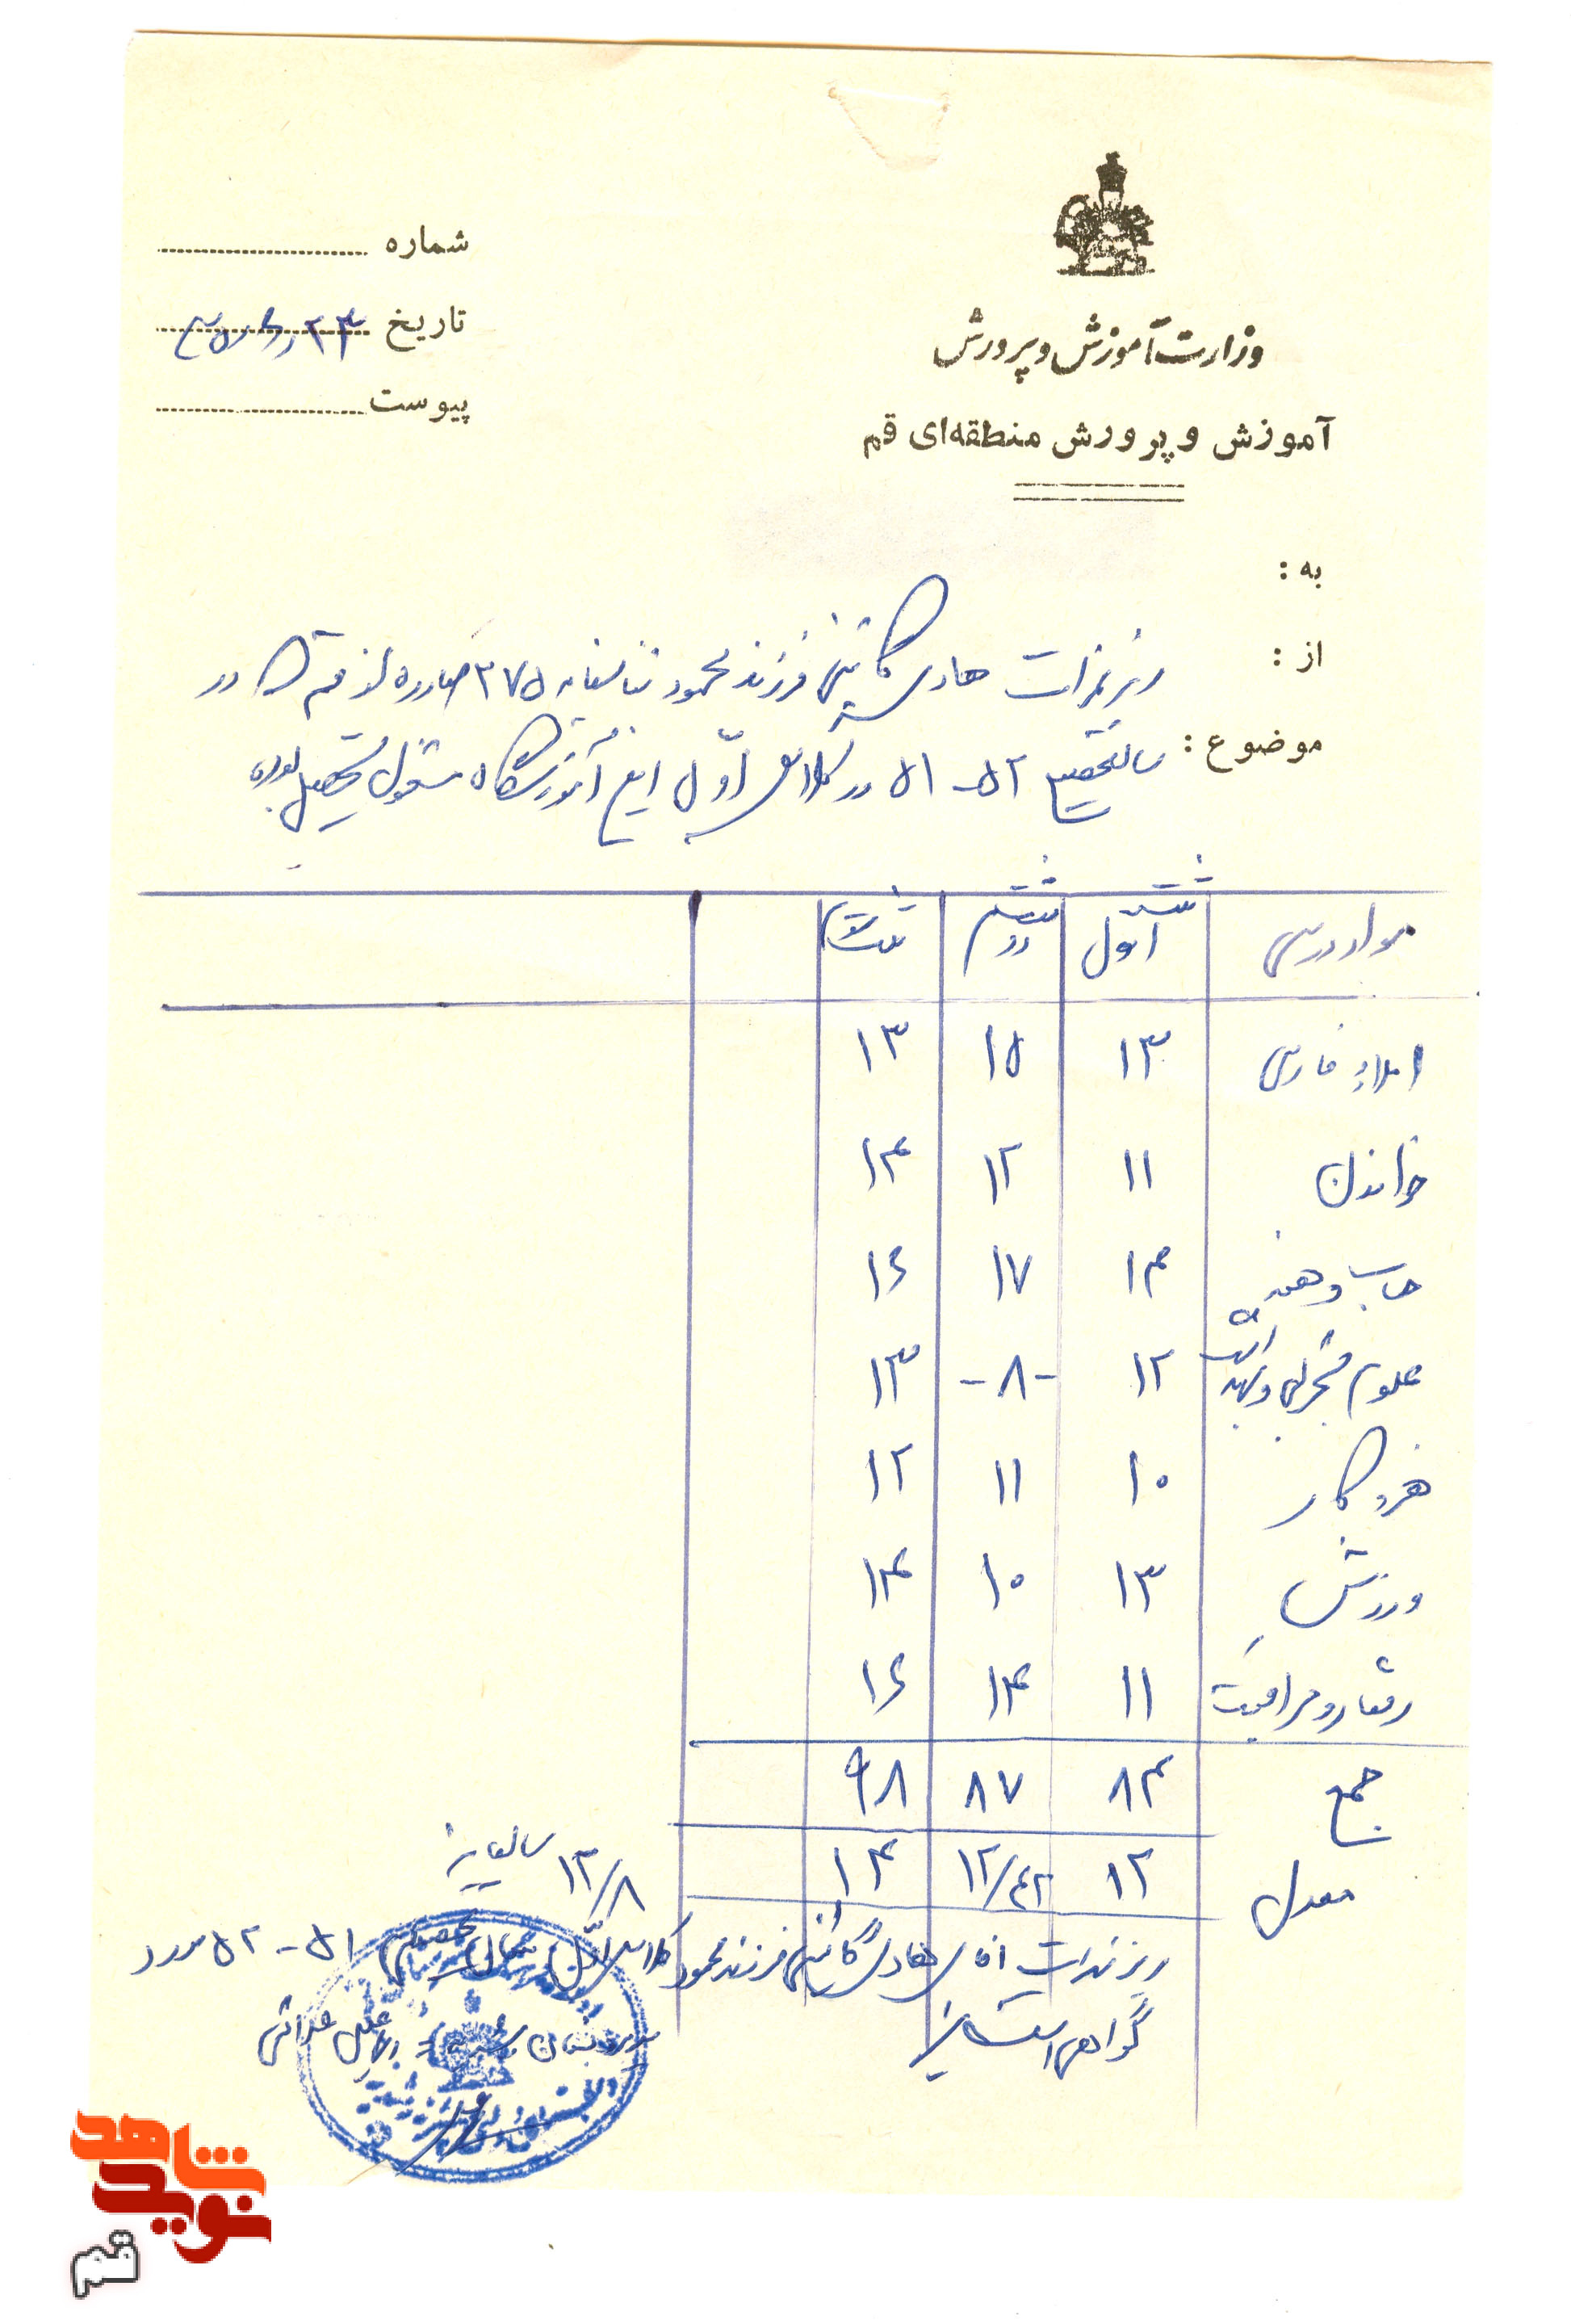 وزارت آموزش و پرورش
آموزش و پرورش منطقه‌ای قم
شماره
تاریخ
پیوست
به :
از :
ریز نمرات هادی فرزند محمود شناسنامه ۳۷۵ صادره از قم که در
موضوع :
سال تحصیلی ۵۲ - ۵۱ در کلاس اول این آموزشگاه مشغول تحصیل بوده
مواد درسی ثلث اول ثلث دوم ثلث سوم
املاء فارسی ۱۳ ۱۵ ۱۳
خواندن ۱۱ ۱۲ ۱۴
حساب و هندسه ۱۴ ۱۷ ۱۶
علوم تجربی و بهداشت ۱۲ -۸- ۱۳
هنر و کار ۱۰ ۱۱ ۱۲
ورزش ۱۳ ۱۰ ۱۴
رفتار و مراقبت ۱۱ ۱۴ ۱۶
جمع ۸۴ ۸۷ ۹۸
معدل ۱۲ ۱۲/۴۲ ۱۴
۱۲/۸ سالیانه
ریز نمرات آقای هادی فرزند محمود کلاس اول سال تحصیلی ۵۱ - ۵۲ مورد
گواهی است
شاهد
نوید
قم